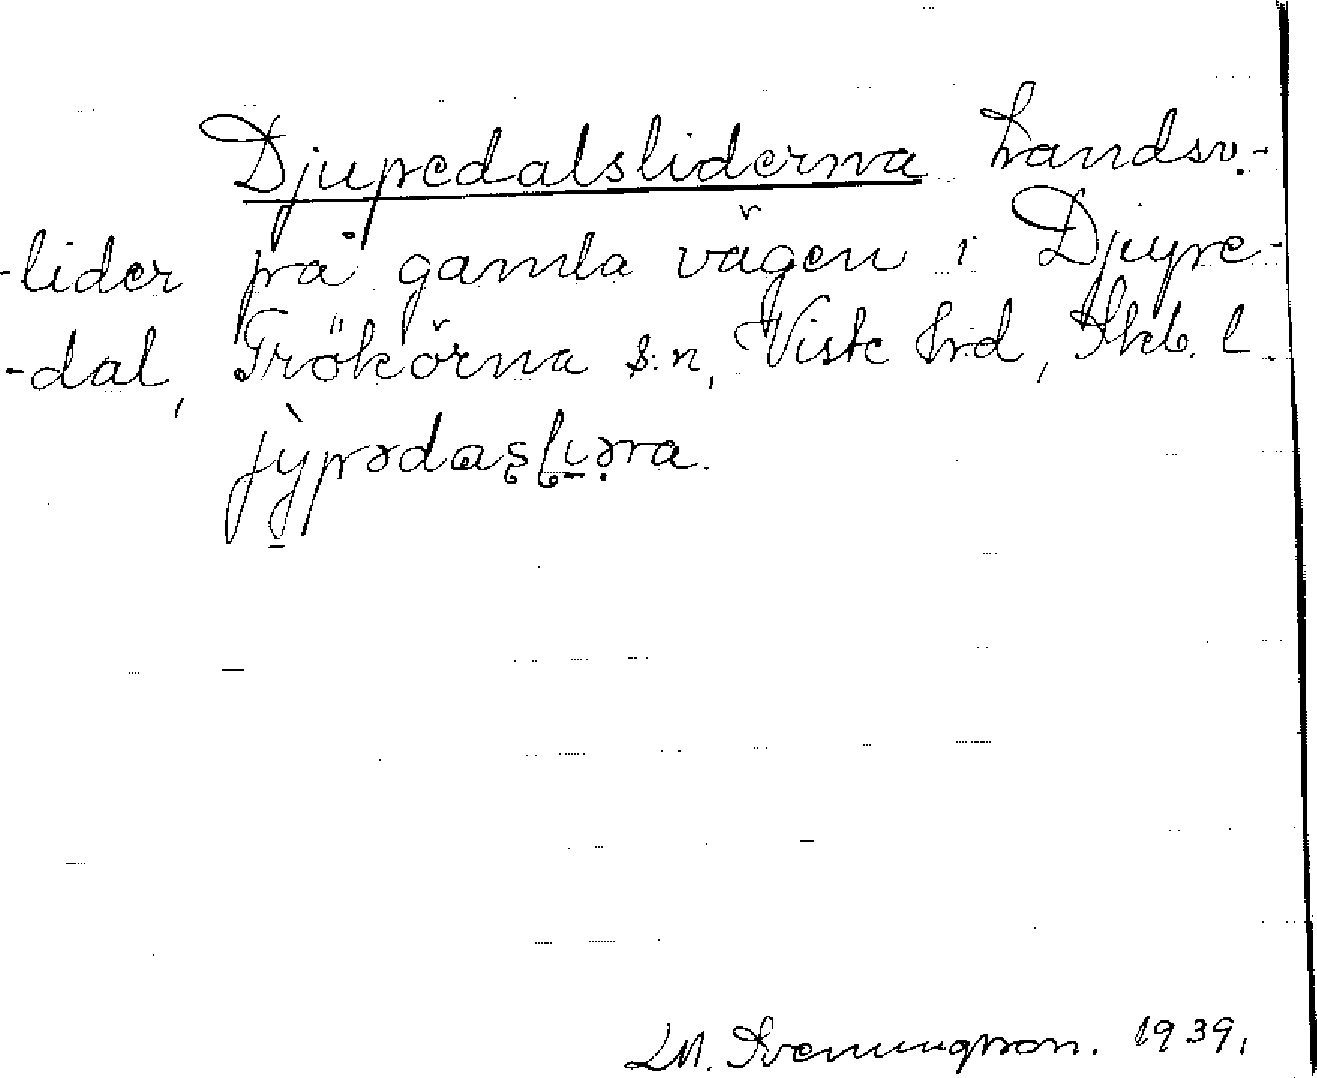 Djupedalsliderna Landsv.-
-lider på gamla vägen i Djupe-
-dal, Trökörna s:n, Viste hrd, Skb. l.
jỳpədaʂl̠ɩəra.
M. Svenungsson. 1939.